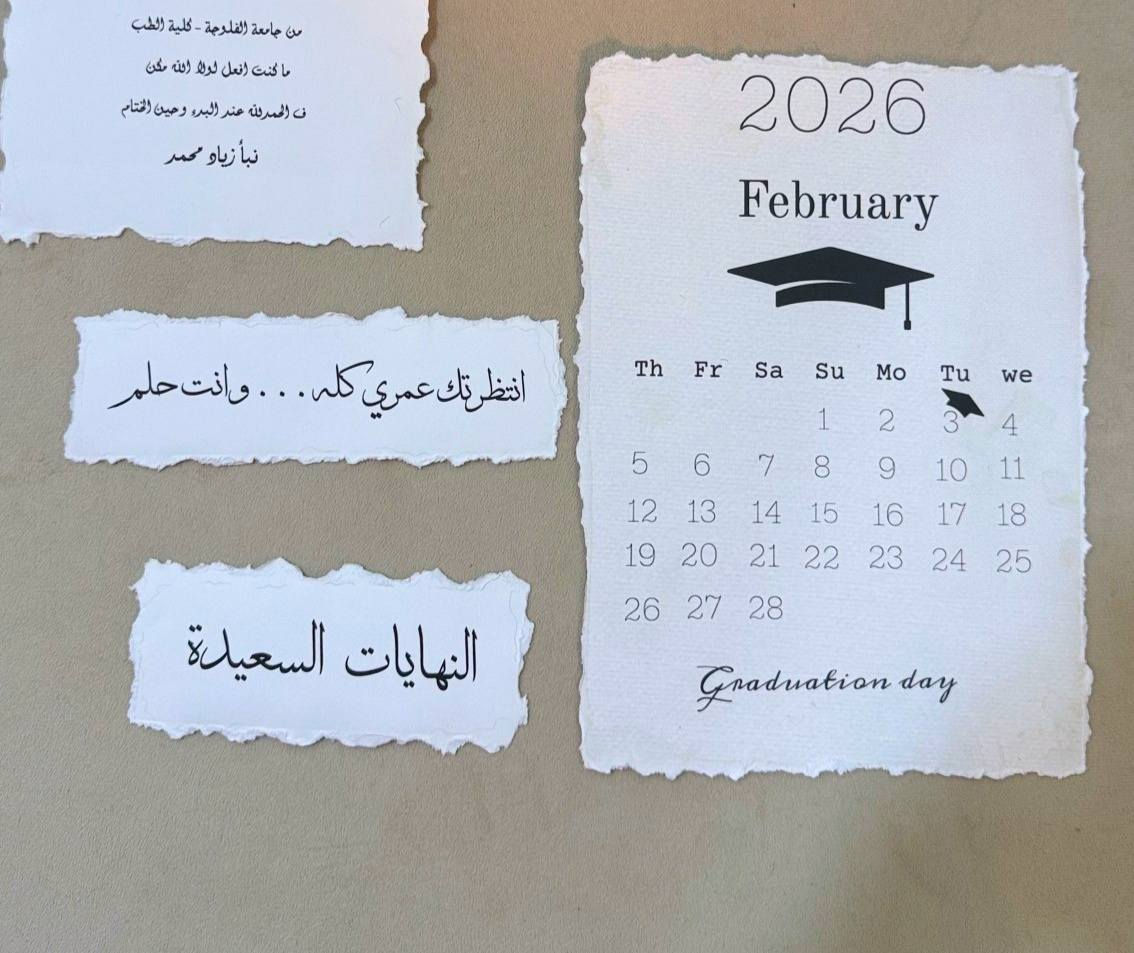 من جامعة الفلوجة - كلية الطب
ما كنت افعل لولا الله مكن
ف الحمدلله عند البدء وحين الختام
نبأ زياد محمد
انتظرتك عمري كله ... وانت حلم
النهايات السعيدة
2026
February
Th Fr Sa Su Mo Tu we
1 2 3 4
5 6 7 8 9 10 11
12 13 14 15 16 17 18
19 20 21 22 23 24 25
26 27 28
Graduation day